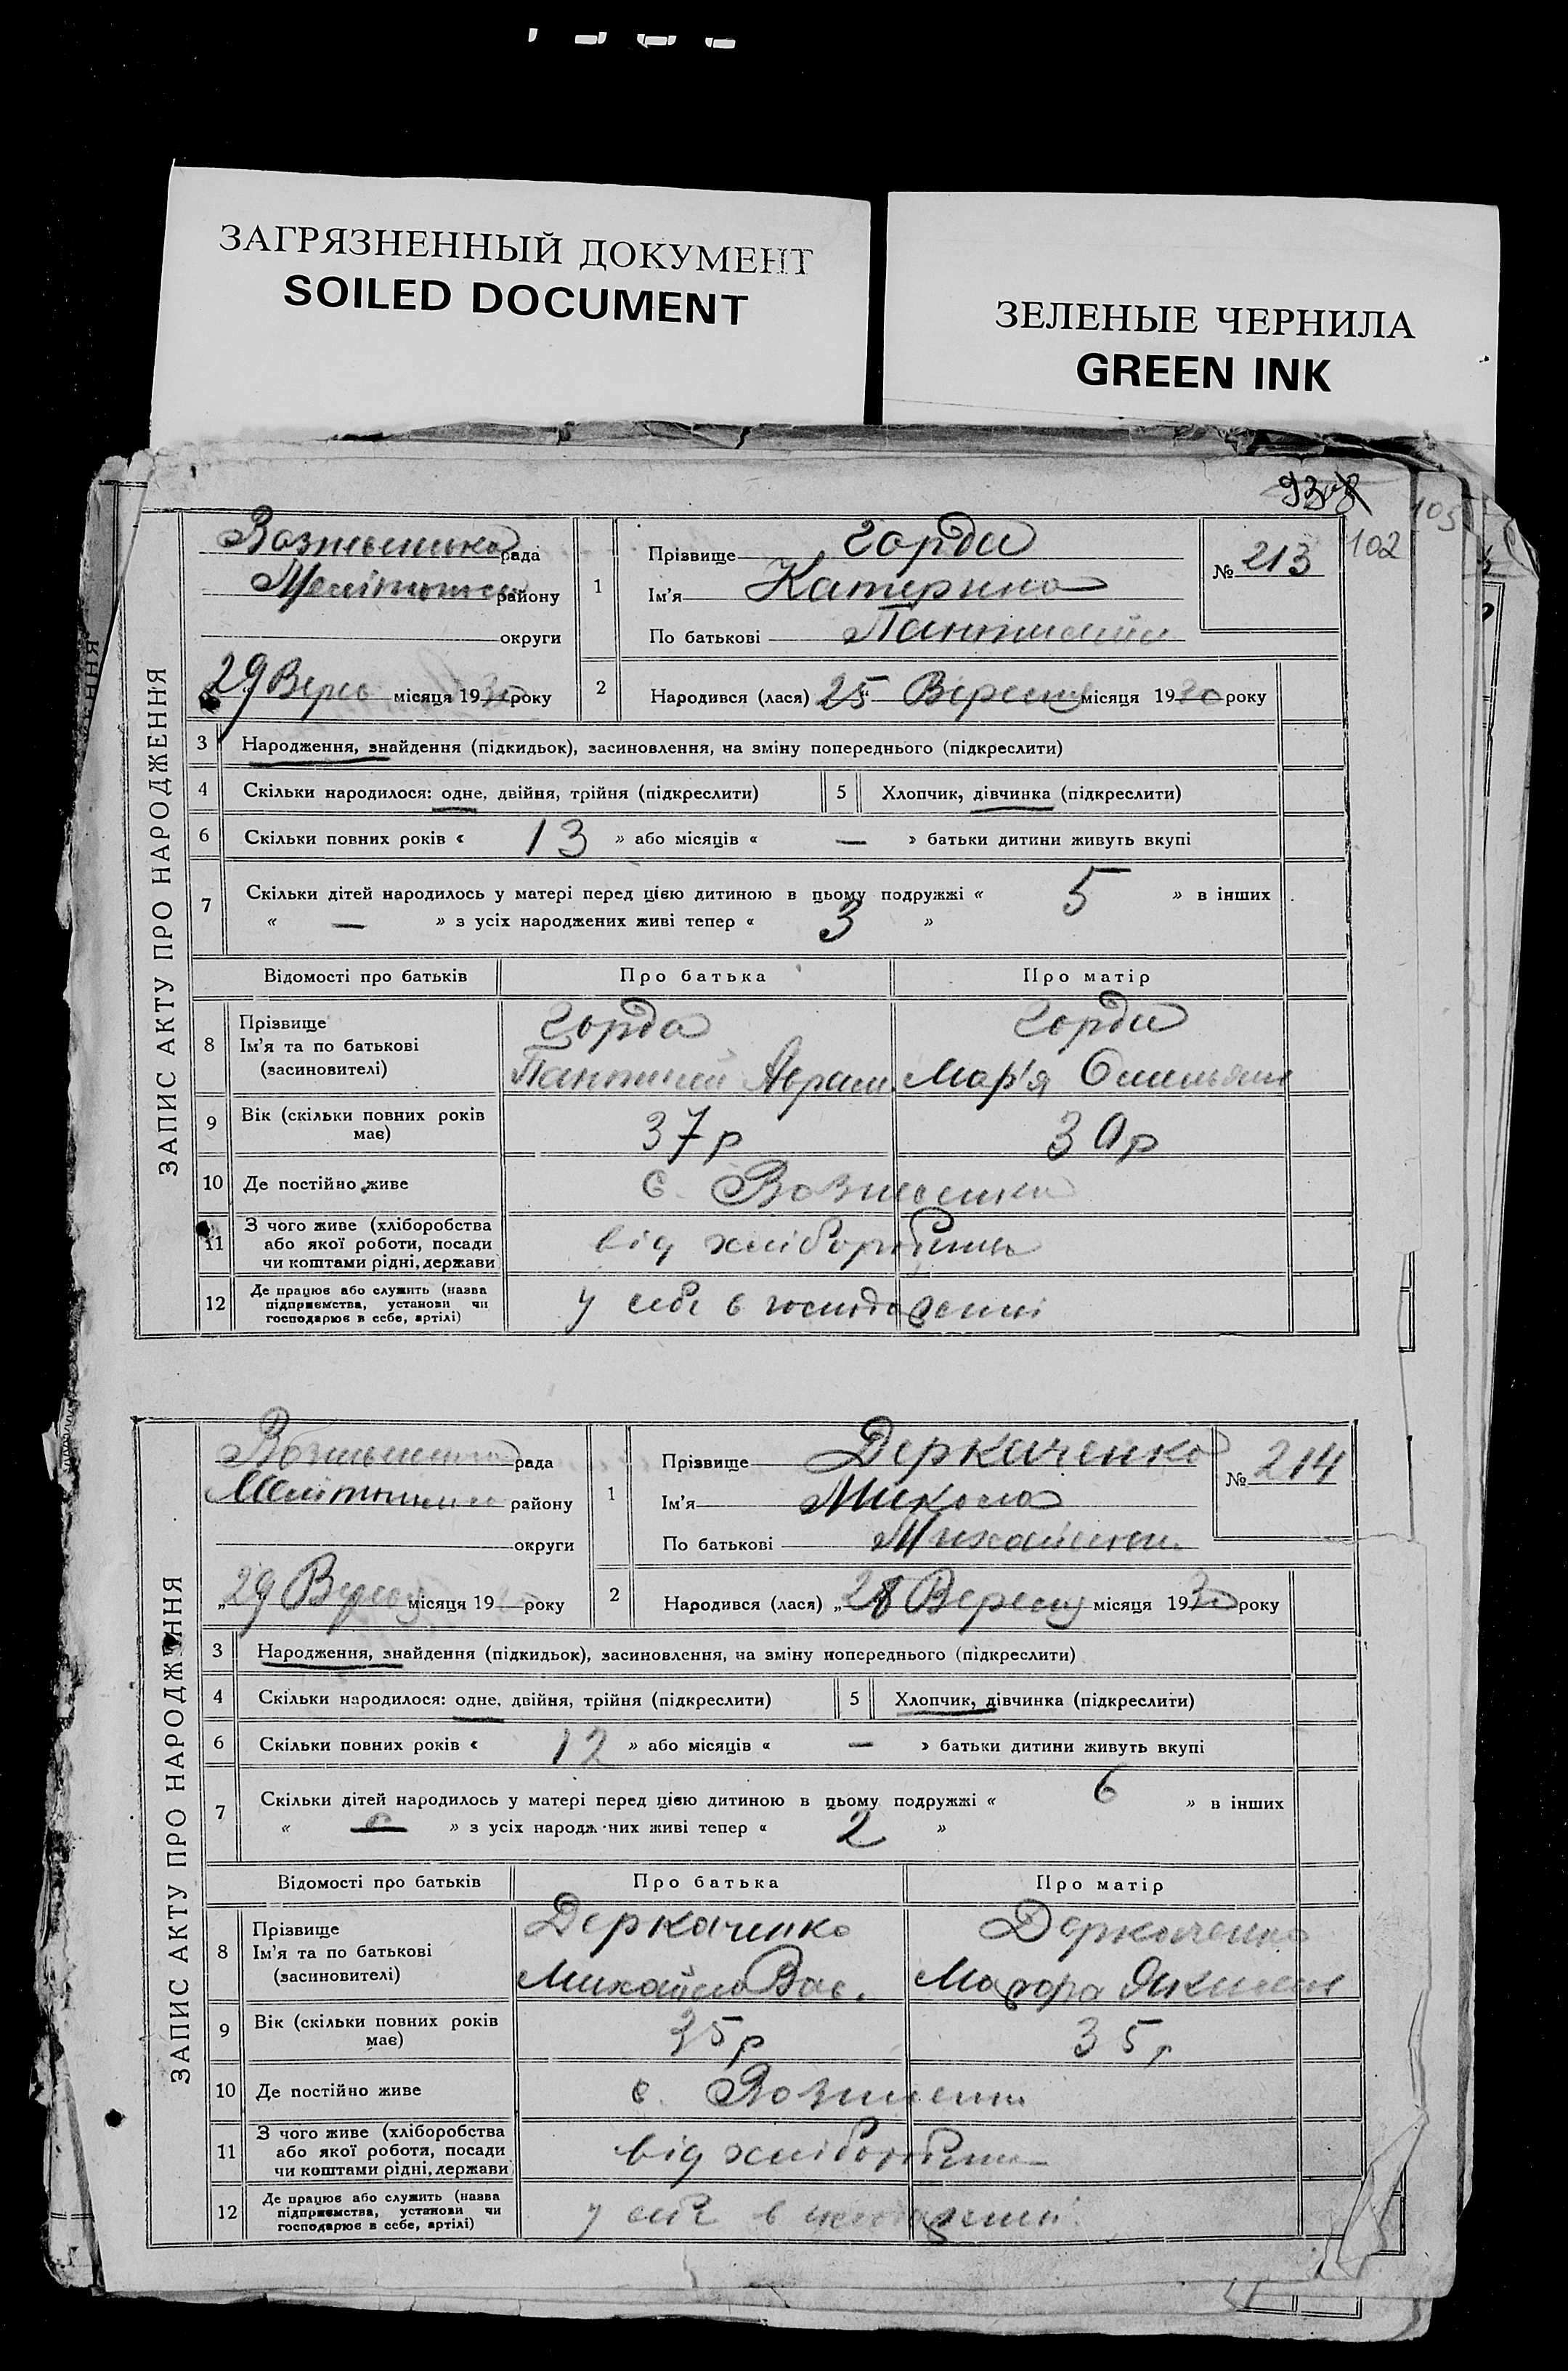 ЗАГРЯЗНЕННЫЙ ДОКУМЕНТ
SOILED DOCUMENT
ЗЕЛЕНЫЕ ЧЕРНИЛА
GREEN INK
105
102
ЗАПИС АКТУ ПРО НАРОДЖЕННЯ
рада
району
округи
29 Верес місяця 1930 року
1
Прізвище Горда
Ім'я Катерина
По батькові
№ 213
2
Народився (лася) 25 Вересня місяця 1930 року
3 Народження, знайдення (підкидьок), засиновлення, на зміну попереднього (підкреслити)
4 Скільки народилося: одне, двійня, трійня (підкреслити) 5 Хлопчик, дівчинка (підкреслити)
6 Скільки повних років « 13 » або місяців « — » батьки дитини живуть вкупі
7 Скільки дітей народилось у матері перед цією дитиною в цьому подружжі « 5 » в інших
« — » з усіх народжених живі тепер « 3 »
Відомості про батьків Про батька Про матір
8 Прізвище
Ім'я та по батькові
(засиновителі)
Горда
Горда
Мар'я
9 Вік (скільки повних років
має)
37 р
30 р
10 Де постійно живе
с. Вознесенка
11 З чого живе (хліборобства
або якої роботи, посади
чи коштами рідні, держави
від хліборобства
12 Де працює або служить (назва
підприємства, установи чи
господарює в себе, артілі)
у себе в господарстві
ЗАПИС АКТУ ПРО НАРОДЖЕННЯ
рада
району
округи
„29 Вересня місяця 19 року
1
Прізвище Деркаченко
Ім'я Микола
По батькові
№ 214
2
Народився (лася) „28 Вересня місяця 1930 року
3 Народження, знайдення (підкидьок), засиновлення, на зміну попереднього (підкреслити)
4 Скільки народилося: одне, двійня, трійня (підкреслити) 5 Хлопчик, дівчинка (підкреслити)
6 Скільки повних років « 12 » або місяців « — » батьки дитини живуть вкупі
7 Скільки дітей народилось у матері перед цією дитиною в цьому подружжі « 6 » в інших
« — » з усіх народж них живі тепер « 2 »
Відомості про батьків Про батька Про матір
8 Прізвище
Ім'я та по батькові
(засиновителі)
Деркаченко
Михайло Вас.
Деркаченко
9 Вік (скільки повних років
має)
35 р
35 р
10 Де постійно живе
с. Вознесенка
11 З чого живе (хліборобства
або якої роботи, посади
чи коштами рідні, держави
від хліборобства
12 Де працює або служить (назва
підприємства, установи чи
господарює в себе, артілі)
у себе в господарстві